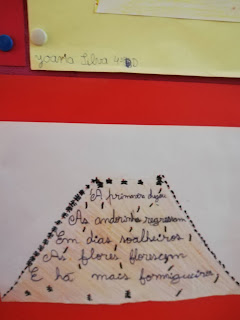 Joana Silva 4ºD
A primavera chegou
As andorinhas regressam
Em dias soalheiros,
As flores florescem
E há mais formigueiros,